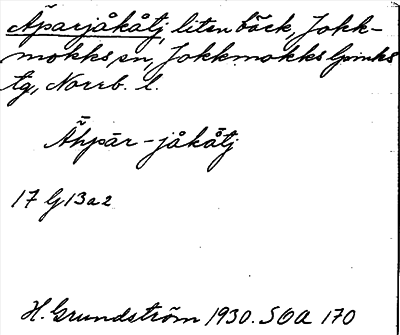 Äparjåkåtj, liten bäck, Jokk-
mokks sn, Jokkmokks lpmks
tg, Norrb. l.
Ãhpār-jåkåtj
17 G 13 a 2
H. Grundström 1930. SOA 170